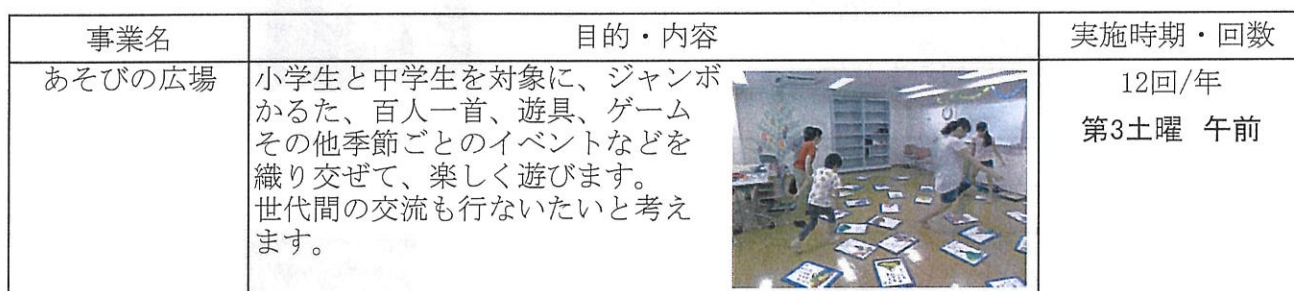 事業名
目的・内容
実施時期・回数
あそびの広場
小学生と中学生を対象に、ジャンボ
かるた、百人一首、遊具、ゲーム
その他季節ごとのイベントなどを
織り交ぜて、楽しく遊びます。
世代間の交流も行ないたいと考え
ます。
12回/年
第3土曜 午前